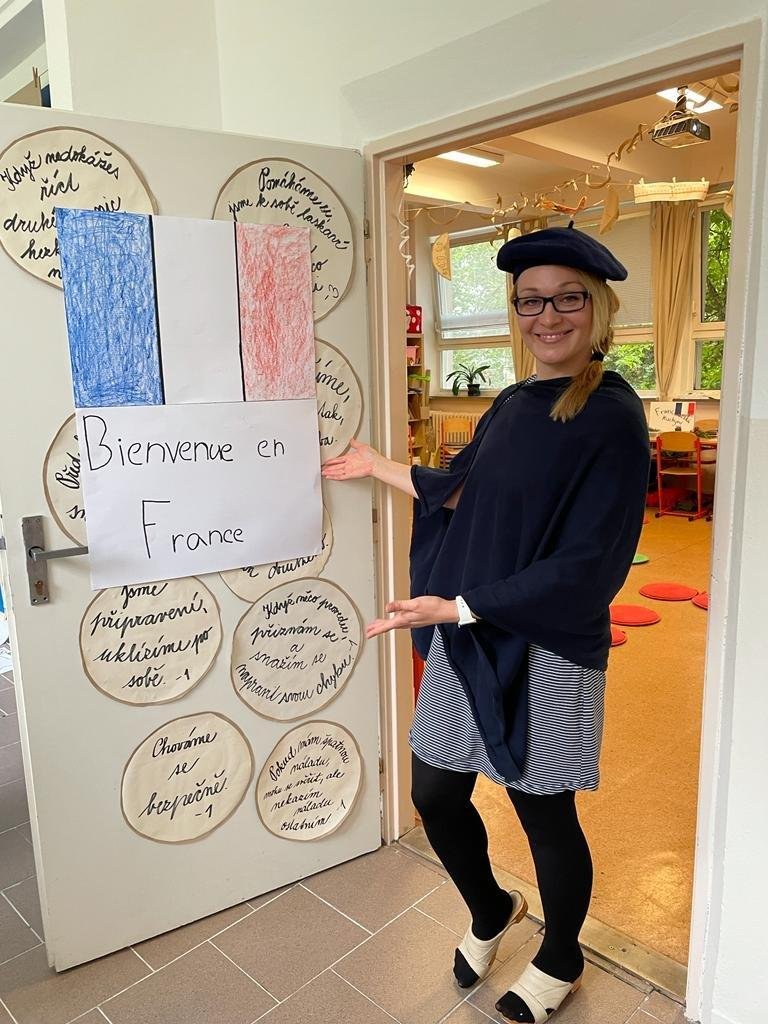 Když nedokážeš
říct
druhé
nic
Pomáháme si,
jsme k sobě laskaví
Bienvenue en
France
Jsme
připravení,
uklízíme po
sobě. -1
Když něco provedu,
přiznám se
a
snažím se
napravit svou chybu.
Chováme
se
bezpečně!
-1
Pokud mám špatnou
náladu,
mohu se svěřit, ale
nekazím
náladu
ostatním.